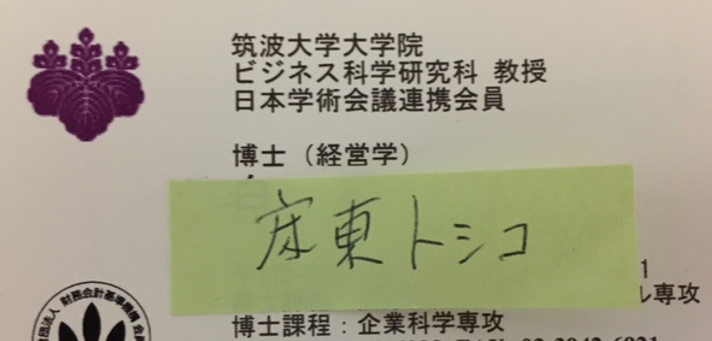 筑波大学大学院
ビジネス科学研究科 教授
日本学術会議連携会員
博士（経営学）
床東トシコ
1
ル専攻
団法人 財務会計基準機構 会員
博士課程：企業科学専攻